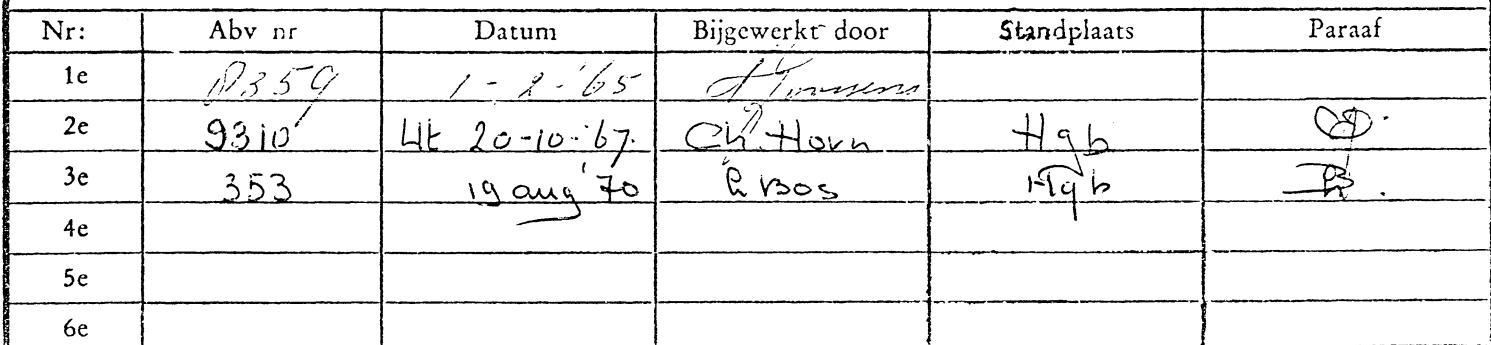 Nr: Abv nr Datum Bijgewerkt door Standplaats Paraaf
1e 8359 1-2-'65
2e 9310 Ut 20-10-'67. Ch. Horn Hgb
3e 353 19 aug '70 Bos Hgb
4e
5e
6e